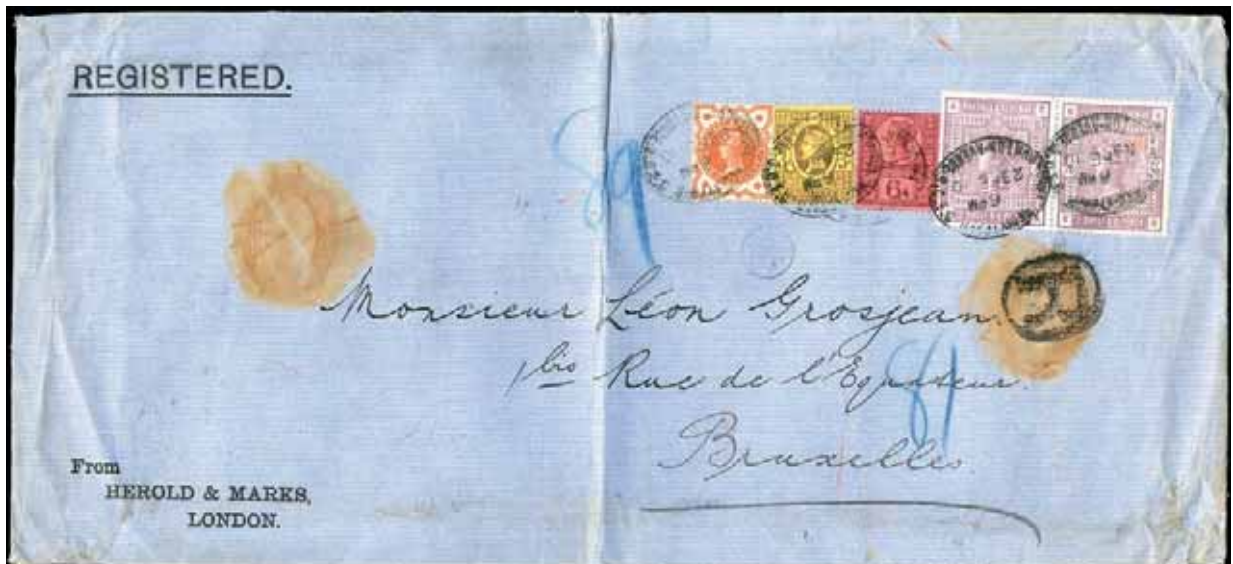 REGISTERED.
89
6d
R
Monsieur Léon Grosjean.
1 bis Rue de l'Equateur.
Bruxelles
From
HEROLD & MARKS,
LONDON.